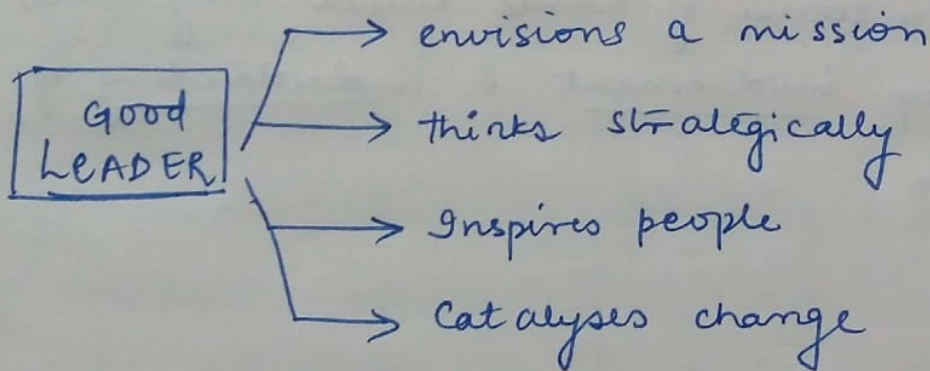 Good
LEADER
envisions a mission
thinks strategically
Inspires people
Catalyses change